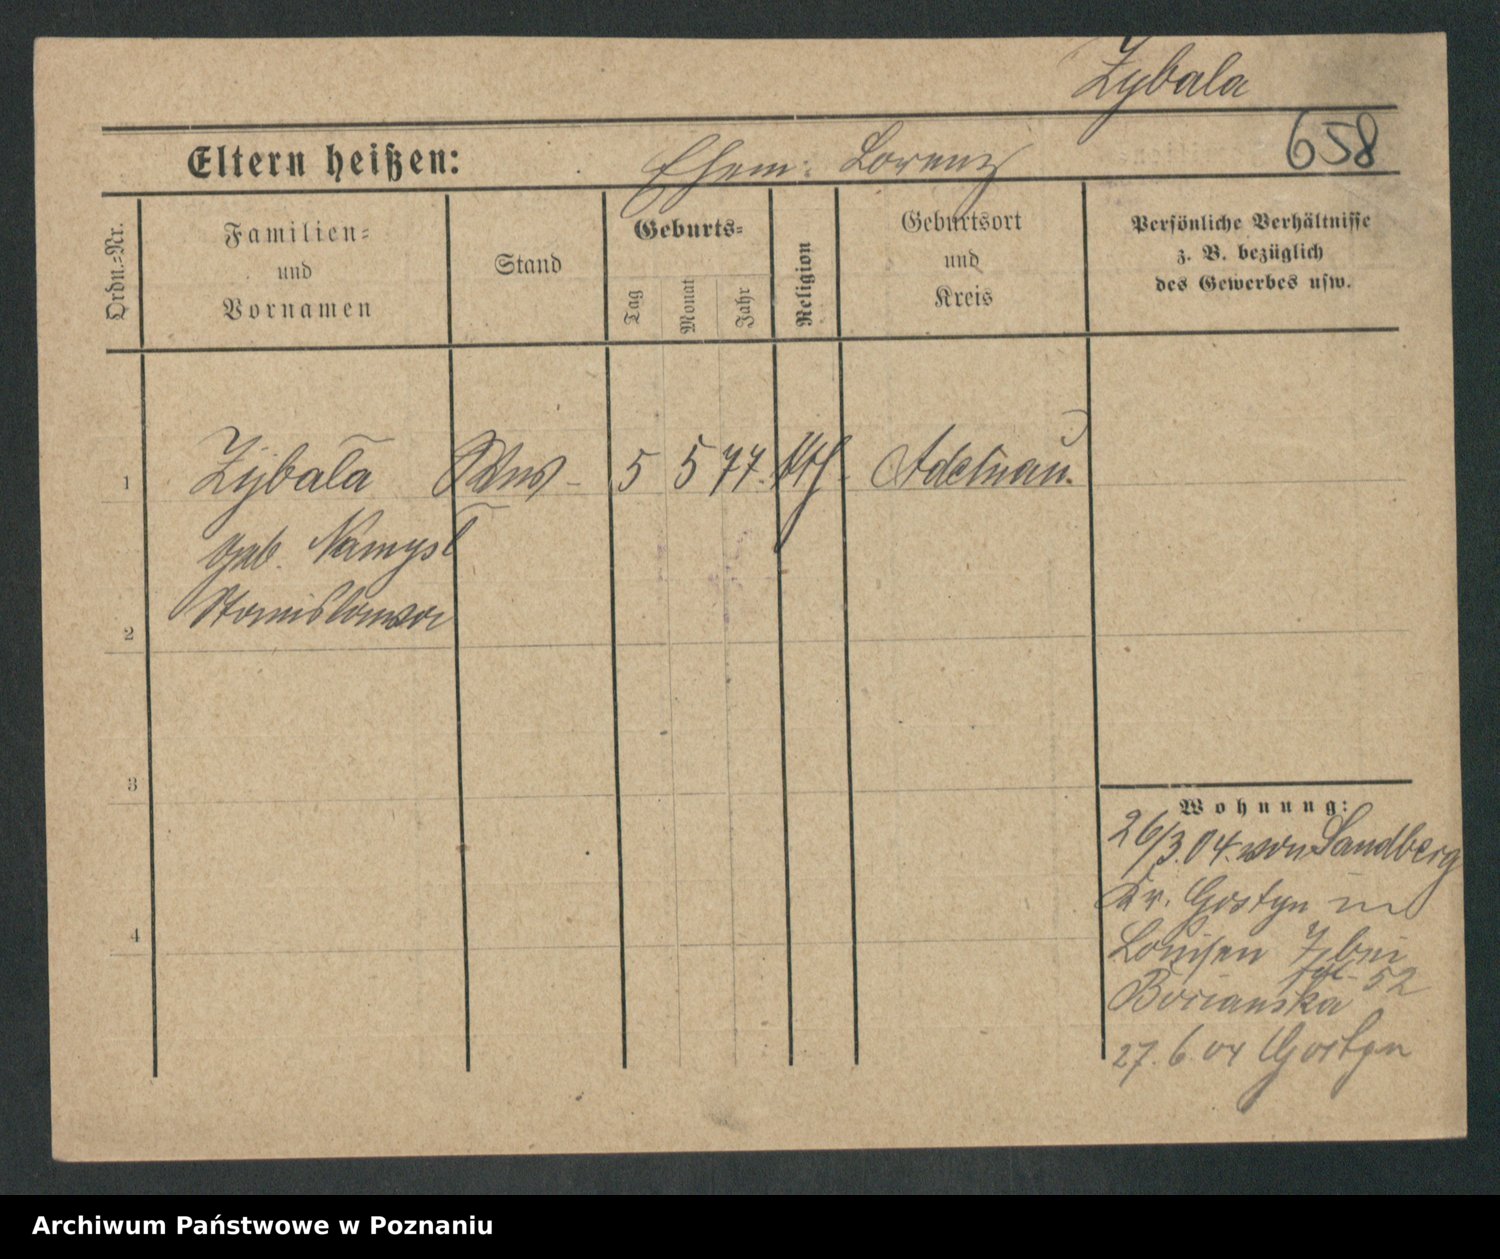 Zybala
658
Eltern heißen: Ehem: Lorenz
Ordn.=Nr.
Familien=
und
Vornamen
Stand
Geburts=
Tag
Monat
Jahr
Religion
Geburtsort
und
Kreis
Persönliche Verhältnisse
z. B. bezüglich
des Gewerbes usw.
1 Zybala Wws 5 5 77. kth. Adelnau.
geb. Namysł
Stanislawa
2
3
4
Wohnung:
26/3.04. von Sandberg
Kr. Gostyn in
Louisen 7 bei
Bocianska 52
27.6.04 Gostyn
Archiwum Państwowe w Poznaniu